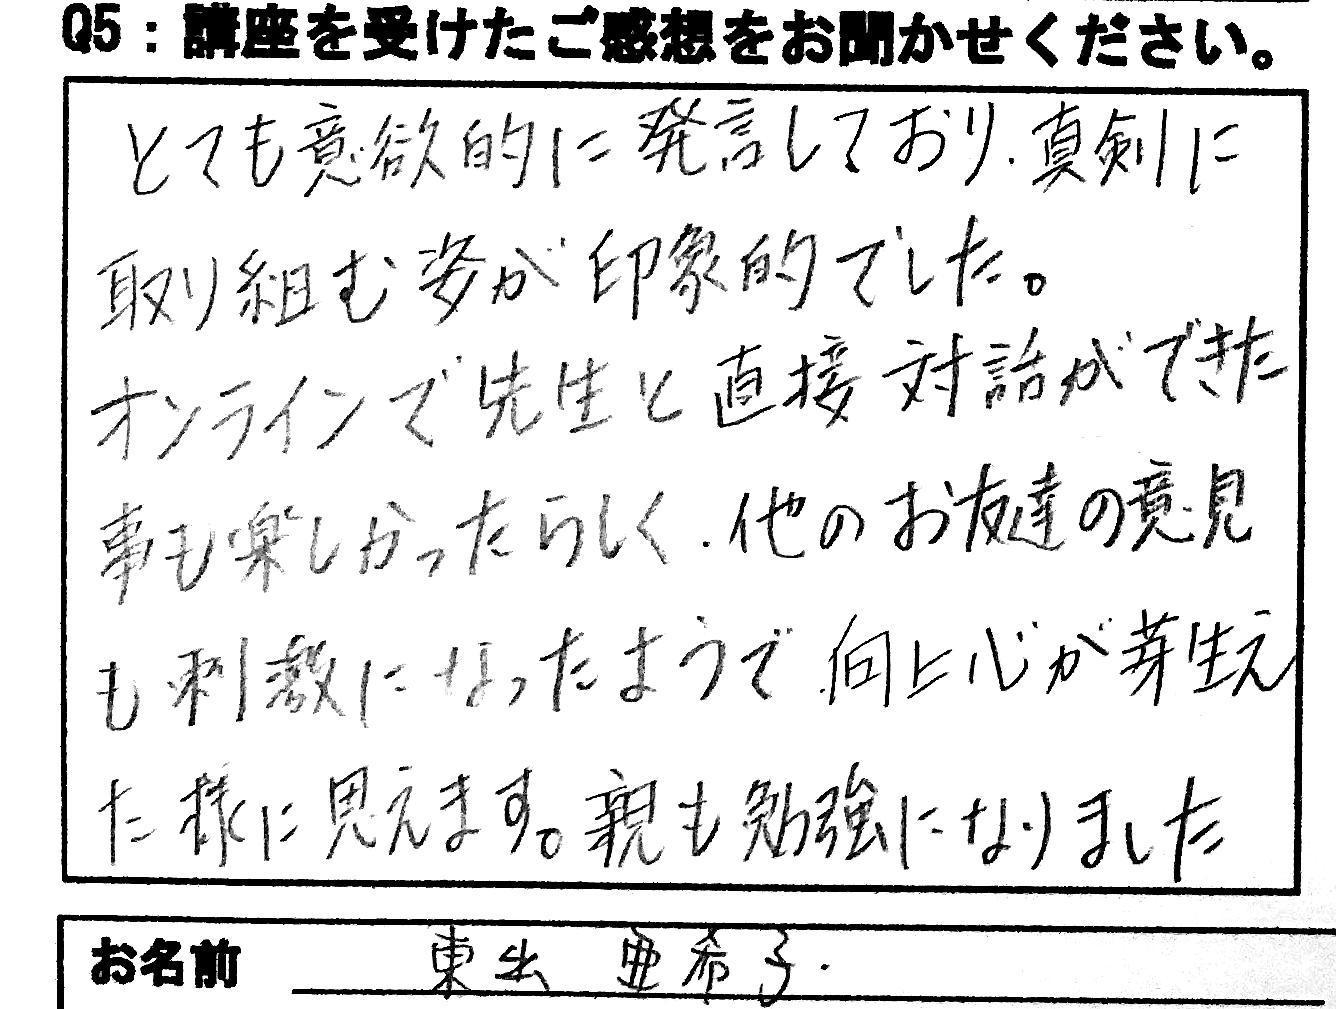 Q5：講座を受けたご感想をお聞かせください。
とても意欲的に発言しており、真剣に
取り組む姿が印象的でした。
オンラインで先生と直接対話ができた
事も楽しかったらしく、他のお友達の意見
も刺激になったようで、向上心が芽生え
た様に思えます。親も勉強になりました
お名前 東出 亜希子